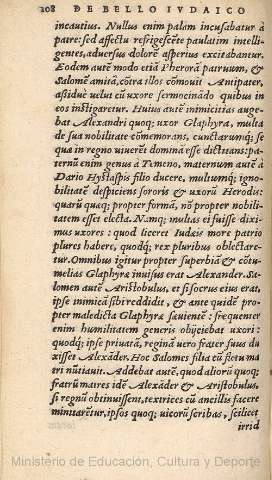 208 DE BELLO IVDAICO
incautius. Nullus enim palàm incusabatur à
patre: sed affectu refrigescẽte paulatim intelli-
gentes, aduersus dolorẽ asperius excitabantur.
Eodem autẽ modo etiã Pherorã patruum, &
Salomẽ amitã, cõtra illos cõmouit Antipater,
assiduè velut cũ uxore sermocinãdo quibus in
eos instigaretur. Huius autẽ inimicitias auge-
bat Alexandri quoq; uxor Glaphyra, multa
de sua nobilitate cõmemorans, cunctarumq́; se
quæ in regno uiuerẽt dominã esse dictitans: pa-
ternũ enim genus à Temeno, maternum autẽ à
Dario Hystaspis filio ducere, multumq́; igno-
bilitatẽ despiciens sororis & uxorũ Herodis:
quarũ quæq; propter formã, nõ propter nobili-
tatem esset electa. Namq; multas ei fuisse dixi-
mus uxores: quod liceret Iudæis more patrio
plures habere, quodq́; rex pluribus oblectare-
tur. Omnibus igitur propter superbiã & cõtu-
melias Glaphyræ inuisus erat Alexander. Sa-
lomen autẽ Aristobulus, et si socrus eius erat,
ipse inimicã sibi reddidit, & ante quidẽ pro-
pter maledicta Glaphyræ sæuientẽ: frequenter
enim humilitatem generis obijciebat uxori:
quodq́; ipse priuatã, reginã uero frater suus du
xisset Alexãder. Hoc Salomes filia cũ fletu ma
tri nũtiauit. Addebat autẽ, quod aliorũ quoq;
fratrũ matres idẽ Alexãder & Aristobulus,
si regnũ obtinuissent, textrices cũ ancillis facere
minitarẽtur, ipsos quoq; uicorũ scribas, scilicet
irrid
Ministerio de Educación, Cultura y Deporte